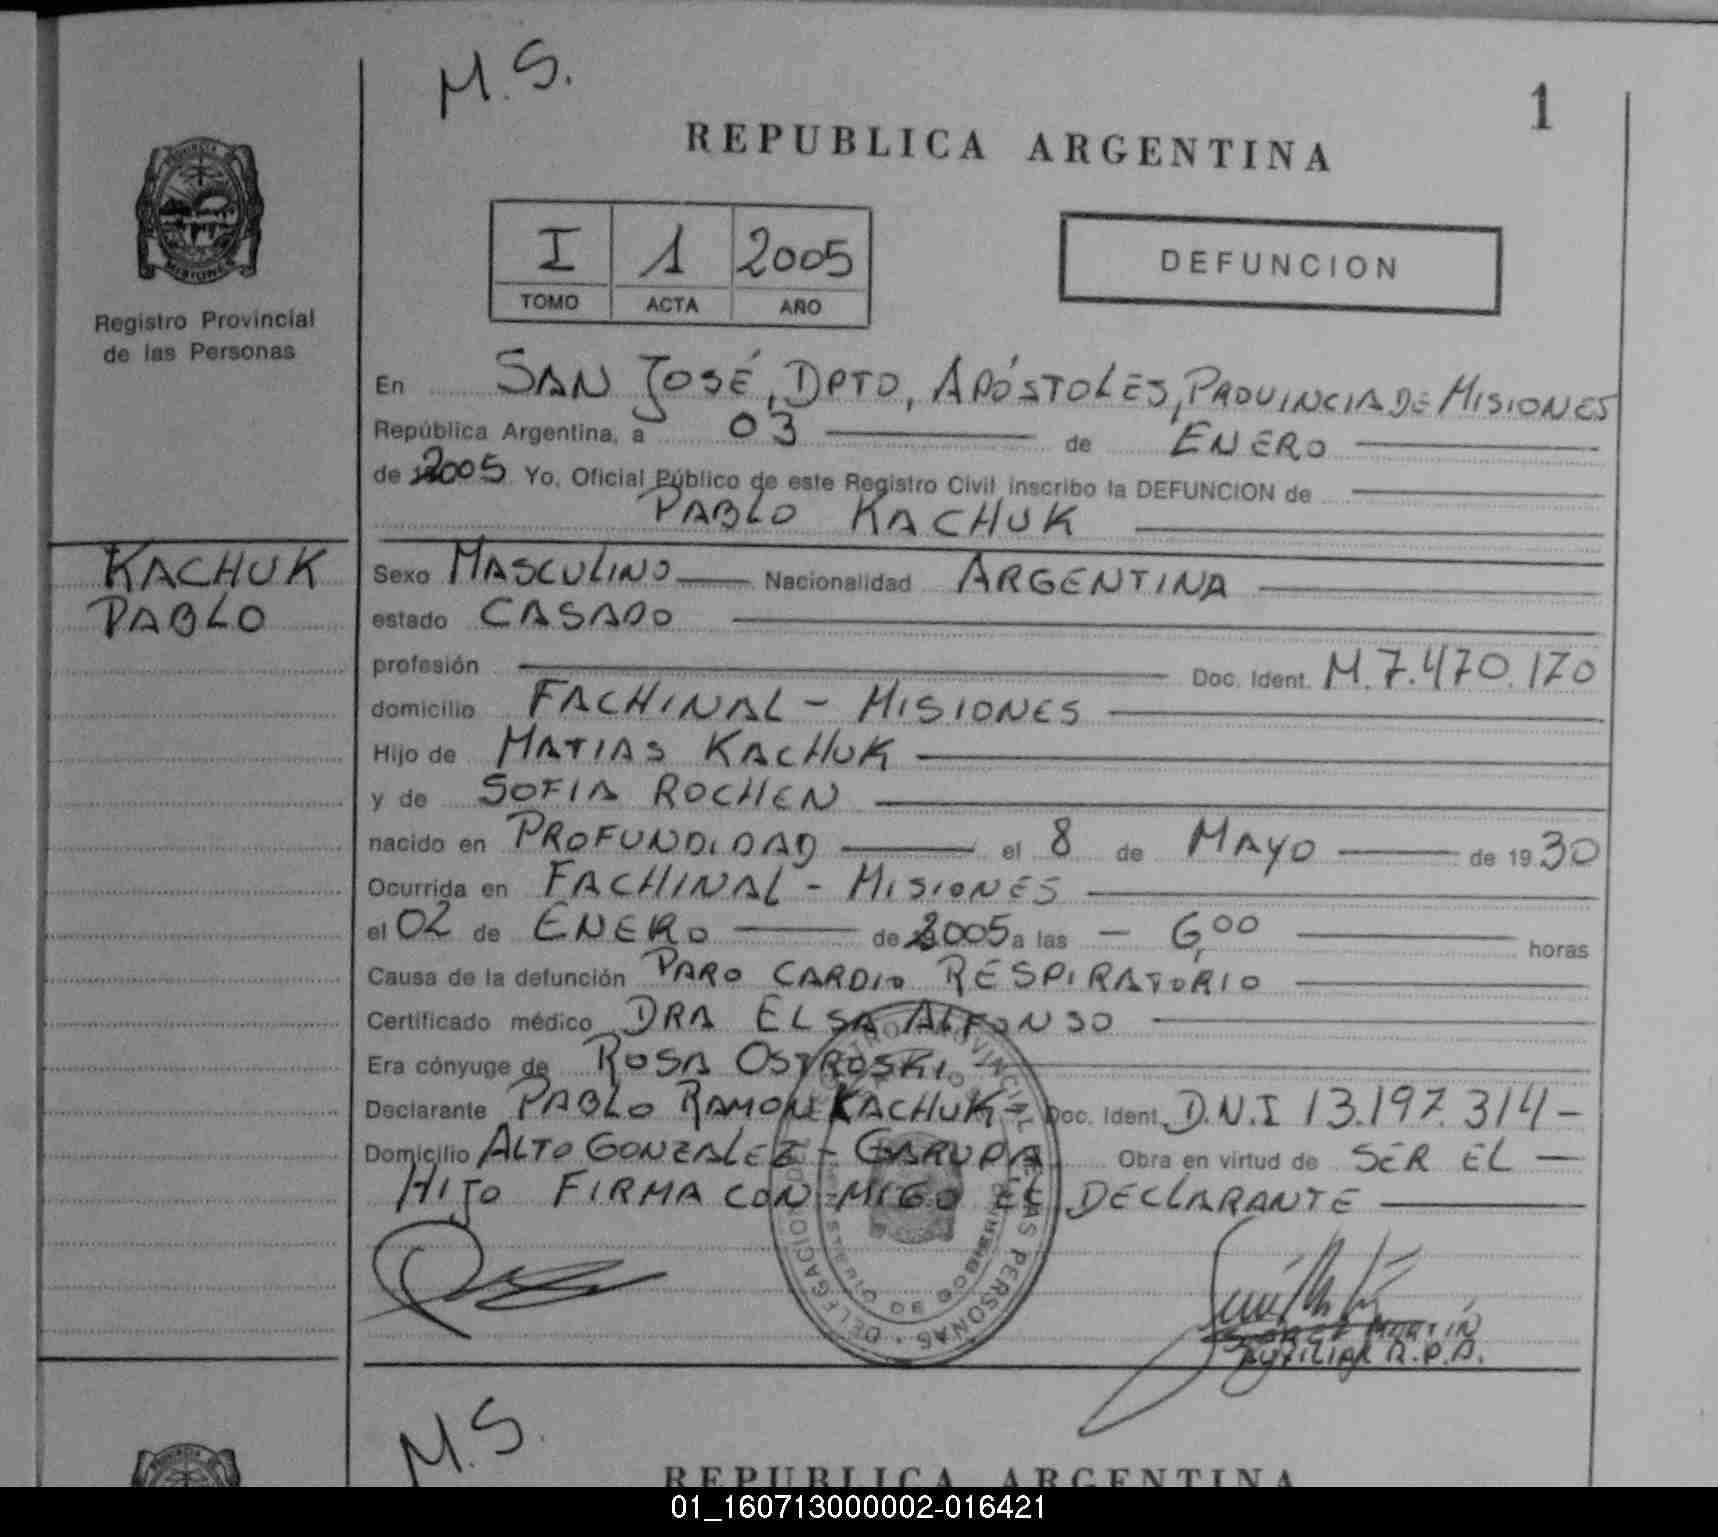 M.S.
1
REPUBLICA ARGENTINA
PROVINCIA DE
MISIONES
Registro Provincial
de las Personas
I 1 2005
TOMO ACTA AÑO
DEFUNCION
En SAN JOSÉ, DPTO, APÓSTOLES, PROVINCIA DE MISIONES
República Argentina, a 03 de ENERO
de 2005 Yo, Oficial Público de este Registro Civil inscribo la DEFUNCION de
PABLO KACHUK
KACHUK
PABLO
Sexo MASCULINO Nacionalidad ARGENTINA
estado CASADO
profesión Doc. Ident. M.7.470.170
domicilio FACHINAL - MISIONES
Hijo de MATIAS KACHUK
y de SOFIA ROCHEN
nacido en PROFUNDIDAD el 8 de MAYO de 19 30
Ocurrida en FACHINAL - MISIONES
el 02 de ENERO de 2005 a las - 6,00 horas
Causa de la defunción PARO CARDIO RESPIRATORIO
Certificado médico DRA ELSA ALFONSO
Era cónyuge de ROSA OSTROSKI
Declarante PABLO RAMON KACHUK - Doc. Ident. D.N.I 13.197.314 -
Domicilio ALTO GONZALEZ - GARUPA Obra en virtud de SER EL -
HIJO FIRMA CON MIGO EL DECLARANTE
REGISTRO PROVINCIAL DE LAS PERSONAS · DELEGACION
MARTÍN
AUXILIAR R.P.
M.S.
REPUBLICA ARGENTINA
01_160713000002-016421